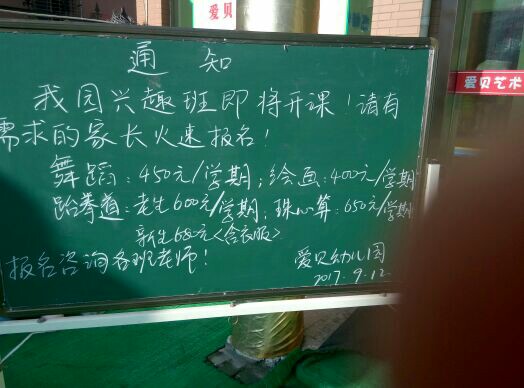 爱贝
爱贝艺术
通知
我园兴趣班即将开课！请有
需求的家长火速报名！
舞蹈：450元/学期；绘画：400元/学期
跆拳道：老生600元/学期，珠心算：650元/学期
新生680元<含衣服>
报名咨询各班老师！
爱贝幼儿园
2017.9.12